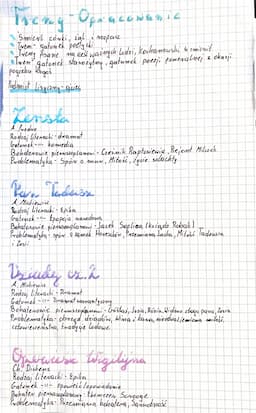 Treny - Opracowanie
Śmierć córki, żal i rozpacz
Tren - gatunek poetycki
Treny pisane na cześć ważnych ludzi, Kochanowski
Tren - gatunek starożytny, gatunek poezji z okazji
pogrzebu
Podmiot liryczny - ojciec
Zemsta
A. Fredro
Rodzaj literacki - dramat
Gatunek - komedia
Bohaterowie pierwszoplanowi - Cześnik Raptusiewicz, Rejent Milczek
Problematyka - Spór o mur, Miłość, życie szlachty
Pan Tadeusz
A. Mickiewicz
Rodzaj literacki - Epika
Gatunek - Epopeja narodowa
Bohaterowie pierwszoplanowi - Jacek Soplica (ksiądz Robak)
Problematyka - spór o zamek Horeszków, Przemiana Jacka, Miłość Tadeusza
i Zosi
Dziady cz. 2
A. Mickiewicz
Rodzaj literacki - Dramat
Gatunek - Dramat romantyczny
Bohaterowie pierwszoplanowi - Guślarz, Józia, Rózia, Widmo złego pana, Zosia
Problematyka - obrzęd dziadów, Wina i kara,
człowieczeństwo, tradycje ludowe
Opowieść Wigilijna
Ch. Dickens
Rodzaj literacki - Epika
Gatunek - opowieść/opowiadanie
Bohater pierwszoplanowy - Ebenezer Scrooge
Problematyka - Przemiana bohatera, Samotność